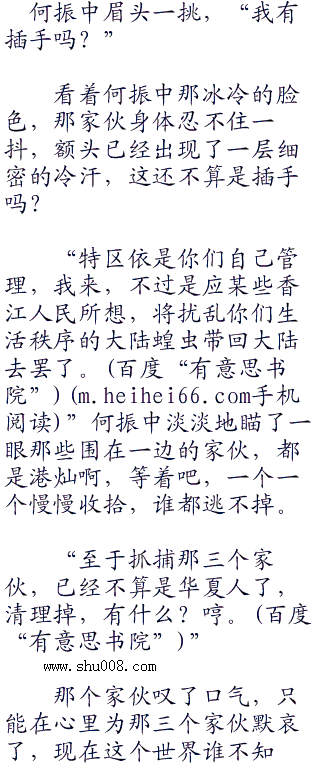 何振中眉头一挑，“我有
插手吗？”
看着何振中那冰冷的脸
色，那家伙身体忍不住一
抖，额头已经出现了一层细
密的冷汗，这还不算是插手
吗？
“特区依是你们自己管
理，我来，不过是应某些香
江人民所想，将扰乱你们生
活秩序的大陆蝗虫带回大陆
去罢了。(百度“有意思书
院”)(m.heihei66.com手机
阅读)”何振中淡淡地瞄了一
眼那些围在一边的家伙，都
是港灿啊，等着吧，一个一
个慢慢收拾，谁都逃不掉。
“至于抓捕那三个家
伙，已经不算是华夏人了，
清理掉，有什么？哼。(百度
“有意思书院”)”
www.shu008.com
那个家伙叹了口气，只
能在心里为那三个家伙默哀
了，现在这个世界谁不知